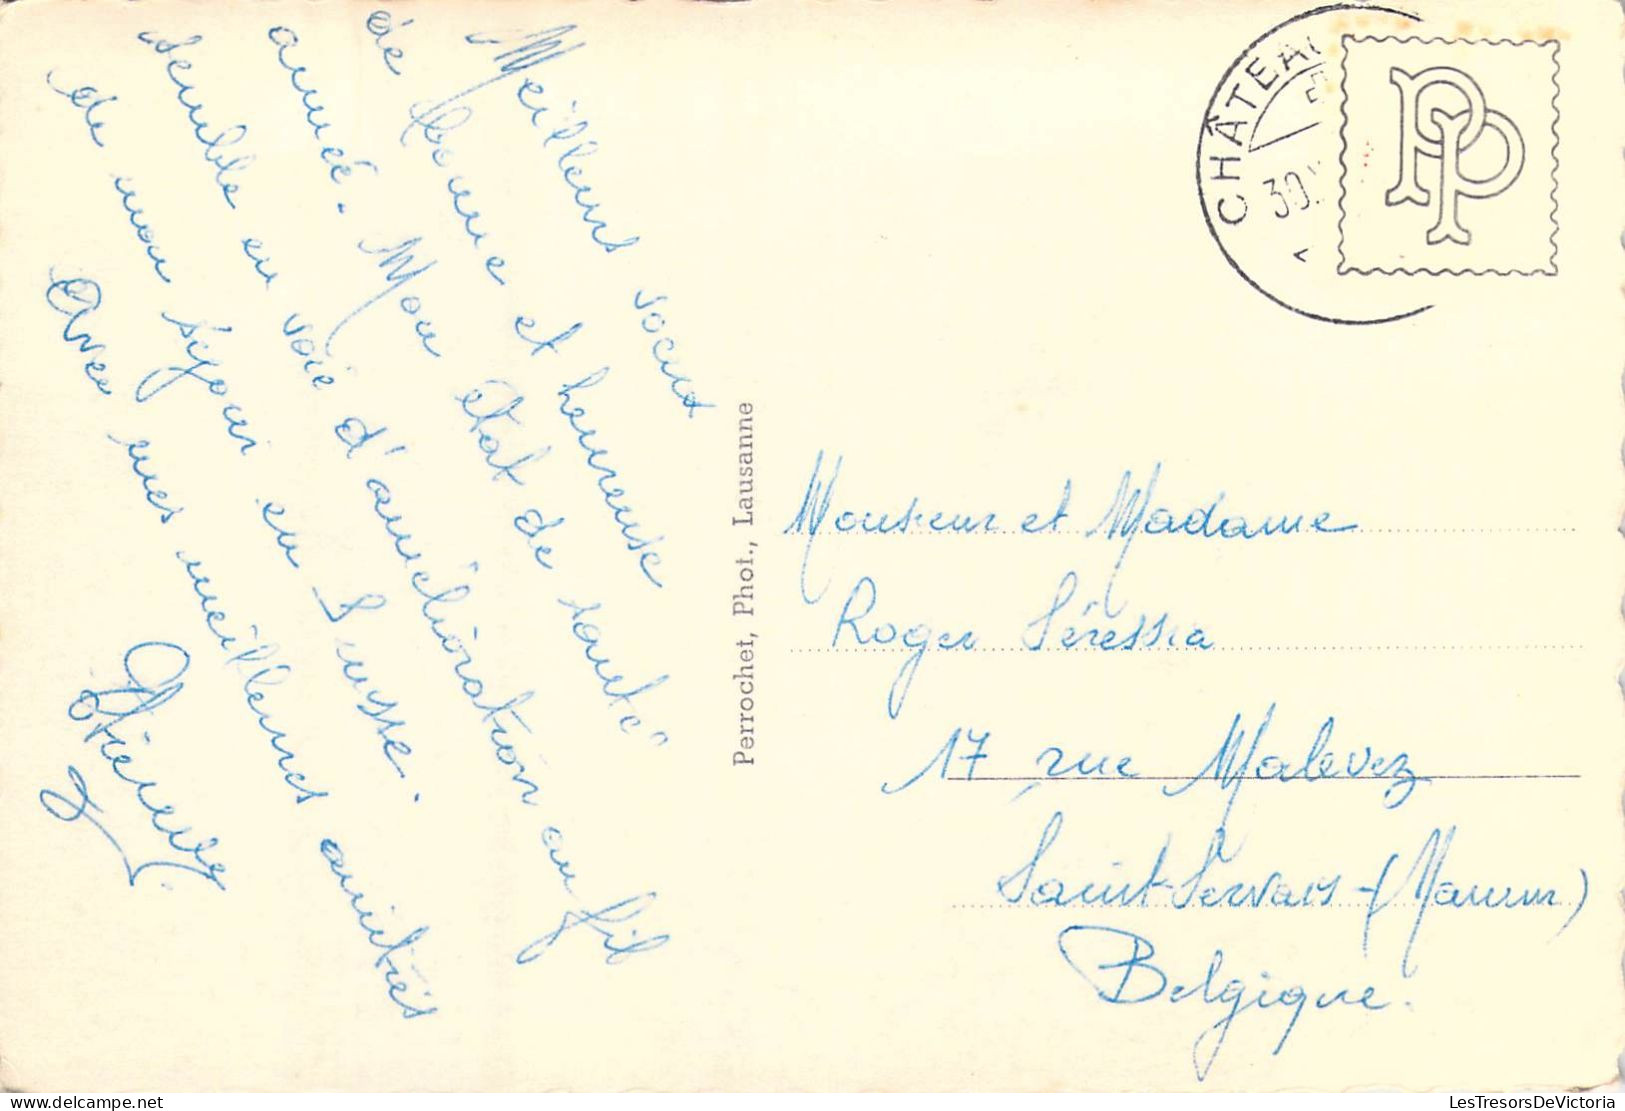 Meilleurs voeux
de bonne et heureuse
année. Mon état de santé
semble en voie d'amélioration au fil
de mon séjour en Suisse.
Avec mes meilleures amitiés
Perrochet, Phot., Lausanne
CHÂTEA
30.
PP
Monsieur et Madame
Roger Séressia
17 rue Malevez
Saint-Servais-(Namur)
Belgique.
delcampe.net
LesTresorsDeVictoria